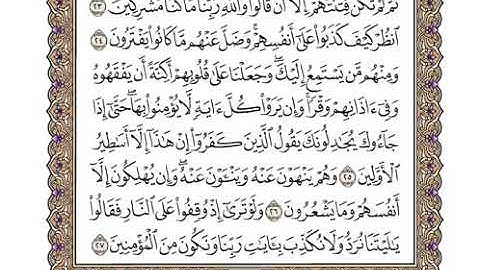 ثُمَّ لَمْ تَكُن فِتْنَتُهُمْ إِلَّآ أَن قَالُوا۟ وَٱللَّهِ رَبِّنَا مَا كُنَّا مُشْرِكِينَ ٢٣
ٱنظُرْ كَيْفَ كَذَبُوا۟ عَلَىٰٓ أَنفُسِهِمْ ۚ وَضَلَّ عَنْهُم مَّا كَانُوا۟ يَفْتَرُونَ ٢٤
وَمِنْهُم مَّن يَسْتَمِعُ إِلَيْكَ ۖ وَجَعَلْنَا عَلَىٰ قُلُوبِهِمْ أَكِنَّةً أَن يَفْقَهُوهُ
وَفِىٓ ءَاذَانِهِمْ وَقْرًا ۚ وَإِن يَرَوْا۟ كُلَّ ءَايَةٍ لَّا يُؤْمِنُوا۟ بِهَا ۚ حَتَّىٰٓ إِذَا
جَآءُوكَ يُجَٰدِلُونَكَ يَقُولُ ٱلَّذِينَ كَفَرُوٓا۟ إِنْ هَٰذَآ إِلَّآ أَسَٰطِيرُ
ٱلْأَوَّلِينَ ٢٥ وَهُمْ يَنْهَوْنَ عَنْهُ وَيَنْـَٔوْنَ عَنْهُ ۖ وَإِن يُهْلِكُونَ إِلَّآ
أَنفُسَهُمْ وَمَا يَشْعُرُونَ ٢٦ وَلَوْ تَرَىٰٓ إِذْ وُقِفُوا۟ عَلَى ٱلنَّارِ فَقَالُوا۟
يَٰلَيْتَنَا نُرَدُّ وَلَا نُكَذِّبَ بِـَٔايَٰتِ رَبِّنَا وَنَكُونَ مِنَ ٱلْمُؤْمِنِينَ ٢٧